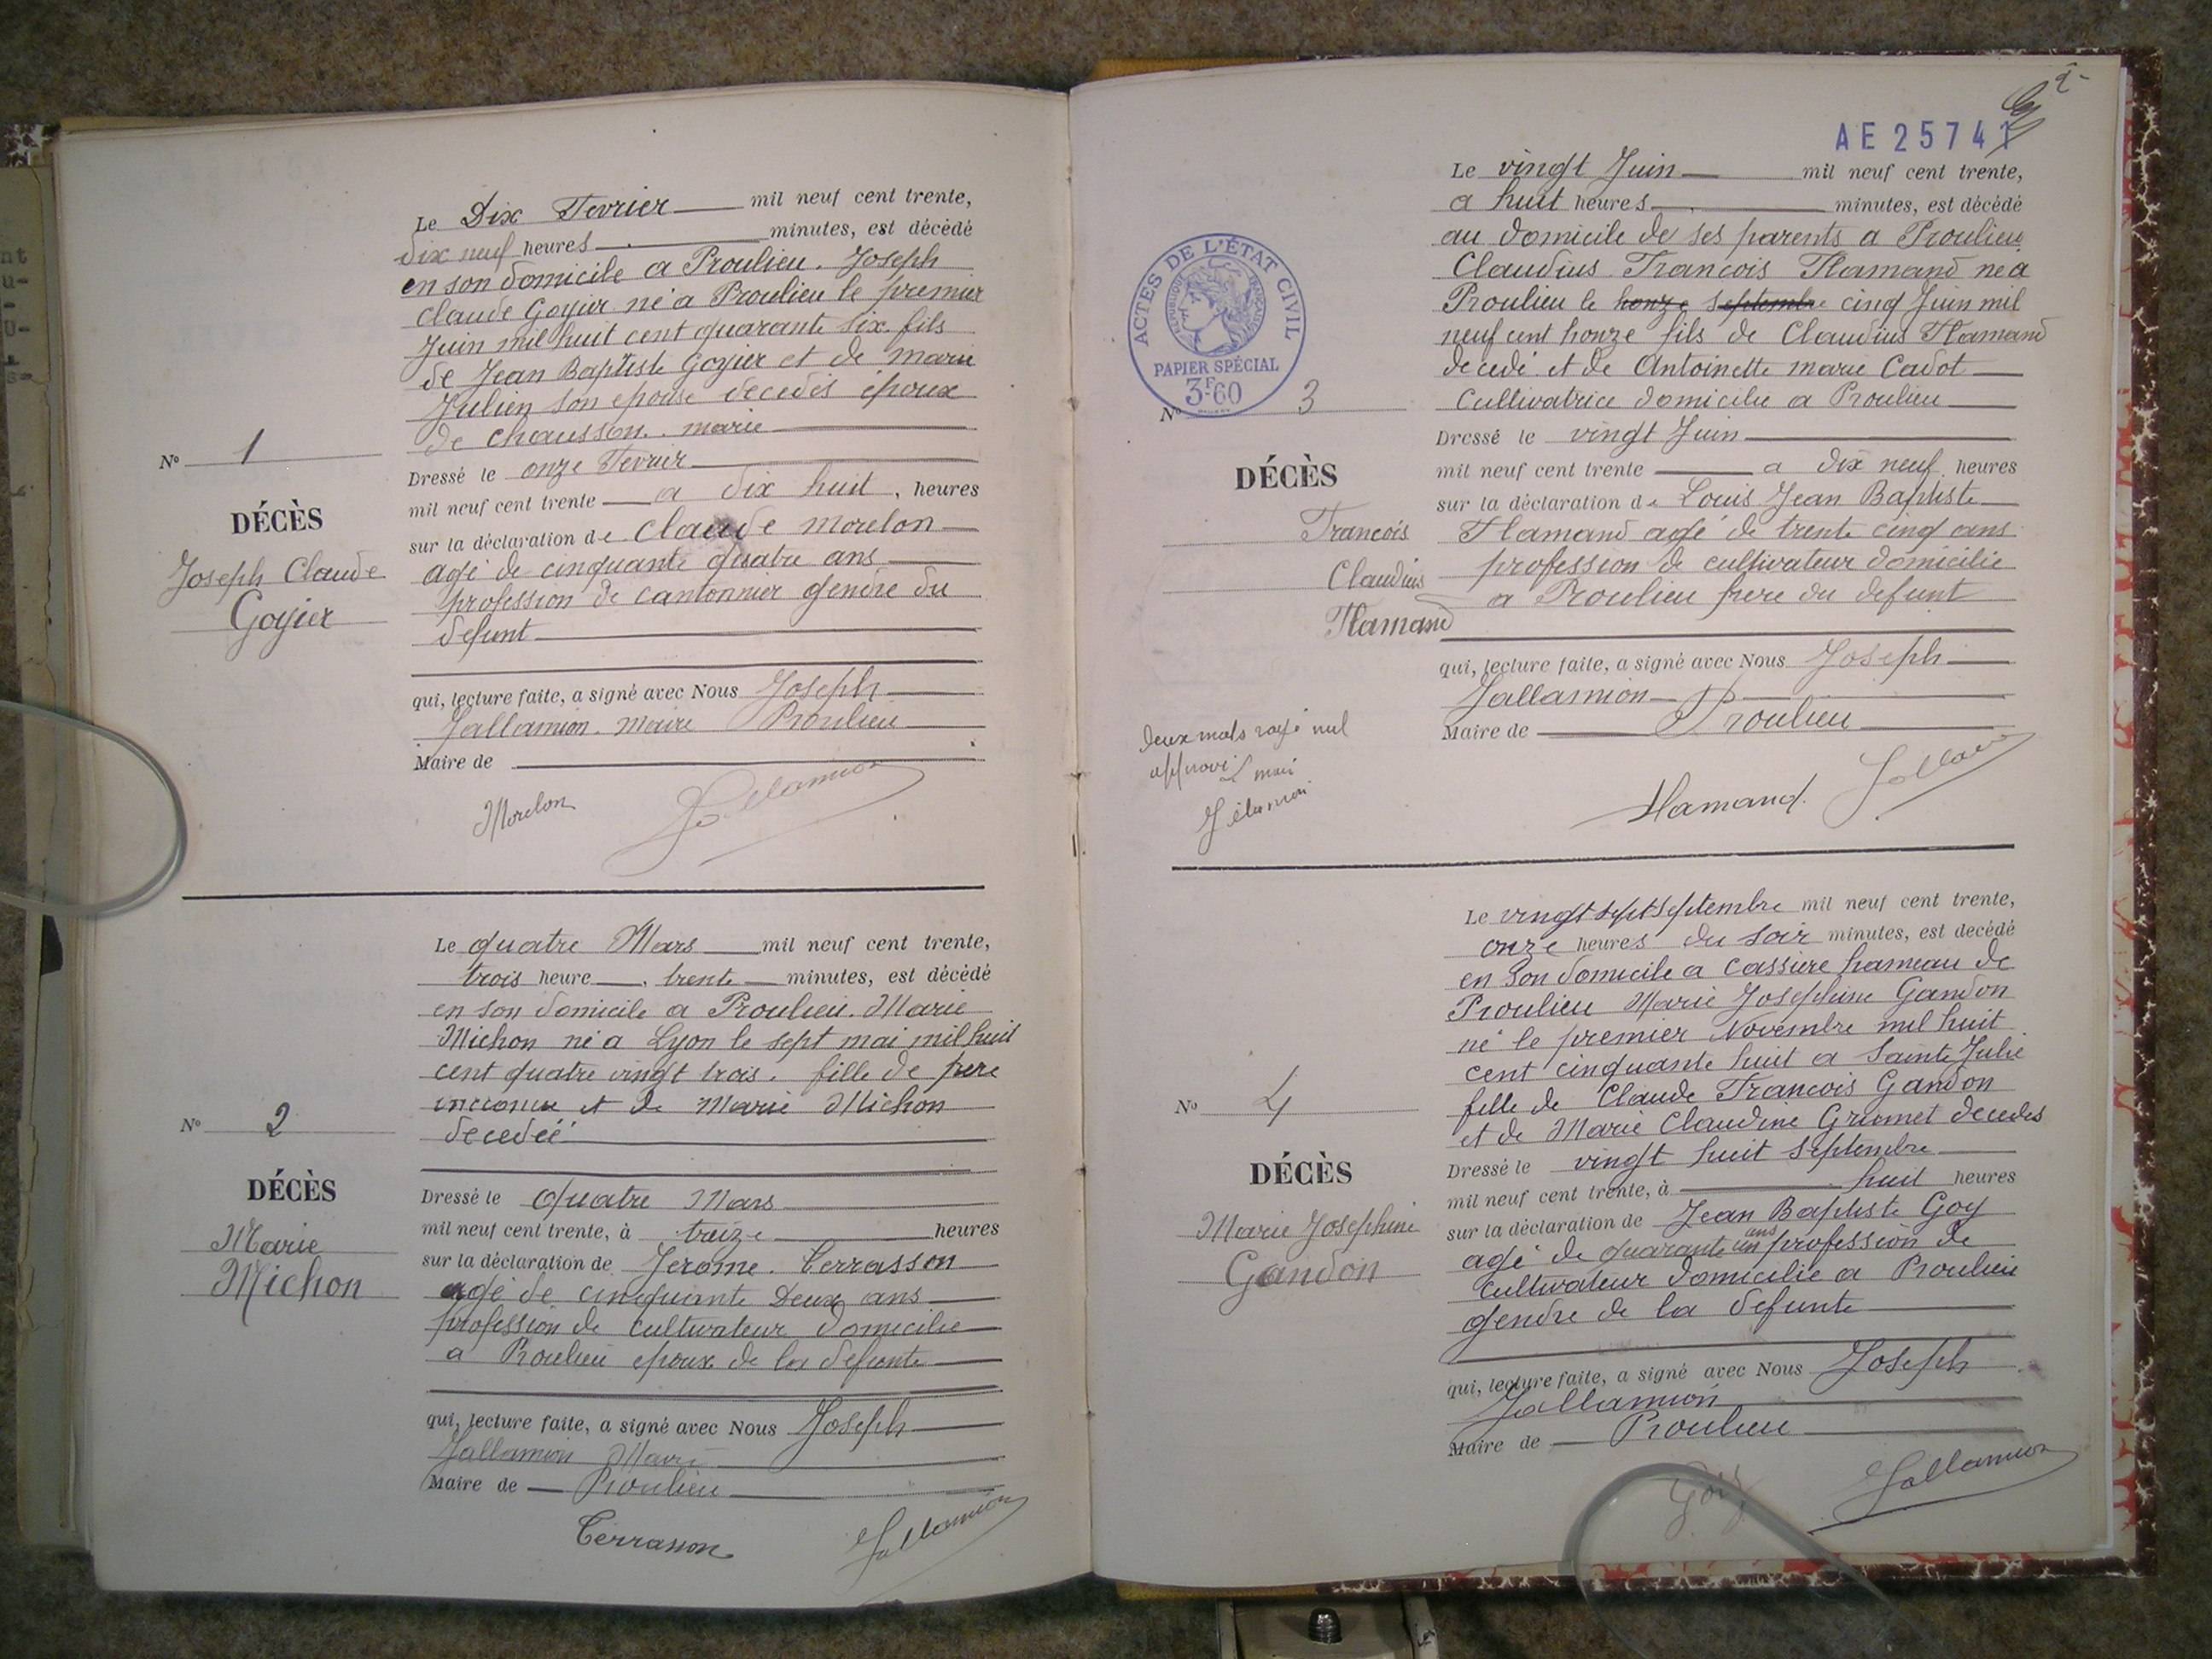 Le Dix Fevrier mil neuf cent trente,
dix neuf heures minutes, est décédé
en son domicile a Proulieu. Joseph
Claude Goyier né a Proulieu le premier
Juin mil huit cent quarante six. fils
de Jean Baptiste Goyier et de marie
Julien son epouse decedés époux
de chausson. marie
Dressé le onze Fevrier
mil neuf cent trente a dix huit, heures
sur la déclaration de Claude morelon
agé de cinquante quatre ans
profession de cantonnier gendre du
defunt
qui, lecture faite, a signé avec Nous Joseph
Jallamion. maire Proulieu
Maire de
Morelon Jallamion
No 1
DÉCÈS
Joseph Claude
Goyier
Le quatre Mars mil neuf cent trente,
trois heure, trente minutes, est décédé
en son domicile a Proulieu. Marie
Michon né a Lyon le sept mai mil huit
cent quatre vingt trois. fille de pere
inconnu et de Marie Michon
decedéé
Dressé le quatre Mars
mil neuf cent trente, à treize heures
sur la déclaration de Jerome. Terrasson
agé de cinquante Deux ans
profession de cultivateur domicilie
a Proulieu epoux de la defunte
qui, lecture faite, a signé avec Nous Joseph
Jallamion Maire
Maire de Proulieu
Terrasson Jallamion
No 2
DÉCÈS
Marie
Michon
2
AE 25741
ACTES DE L'ÉTAT CIVIL
RÉPUBLIQUE FRANÇAISE
PAPIER SPÉCIAL
3F60
Le vingt Juin mil neuf cent trente,
a huit heures minutes, est décédé
au domicile de ses parents a Proulieu
Claudius Francois Flamand né a
Proulieu le honze septembre cinq Juin mil
neuf cent honze fils de Claudius Flamand
decedé et de Antoinette marie Cadot
Cultivatrice domicilie a Proulieu
Dressé le vingt Juin
mil neuf cent trente a dix neuf heures
sur la déclaration de Louis Jean Baptiste
Flamand agé de trente cinq ans
profession de cultivateur domicilie
a Proulieu frere du defunt
qui, lecture faite, a signé avec Nous Joseph
Jallamion
Maire de Proulieu
Flamand
No 3
DÉCÈS
Francois
Claudius
Flamand
Deux mots rayé nul
approuvé
Le vingt sept septembre mil neuf cent trente,
onze heures du soir minutes, est decédé
en son domicile a Cassiere hameau de
Proulieu Marie Josephine Gandon
né le premier Novembre mil huit
cent cinquante huit a Sainte Julie
fille de Claude Francois Gandon
et de Marie Claudine decedes
Dressé le vingt huit septembre
mil neuf cent trente, à huit heures
sur la déclaration de Jean Baptiste Goy
agé de quarante un ans profession de
cultivateur domicilie a Proulieu
gendre de la defunte
qui, lecture faite, a signé avec Nous Joseph
Jallamion
Maire de Proulieu
Goy Jallamion
No 4
DÉCÈS
Marie Josephine
Gandon